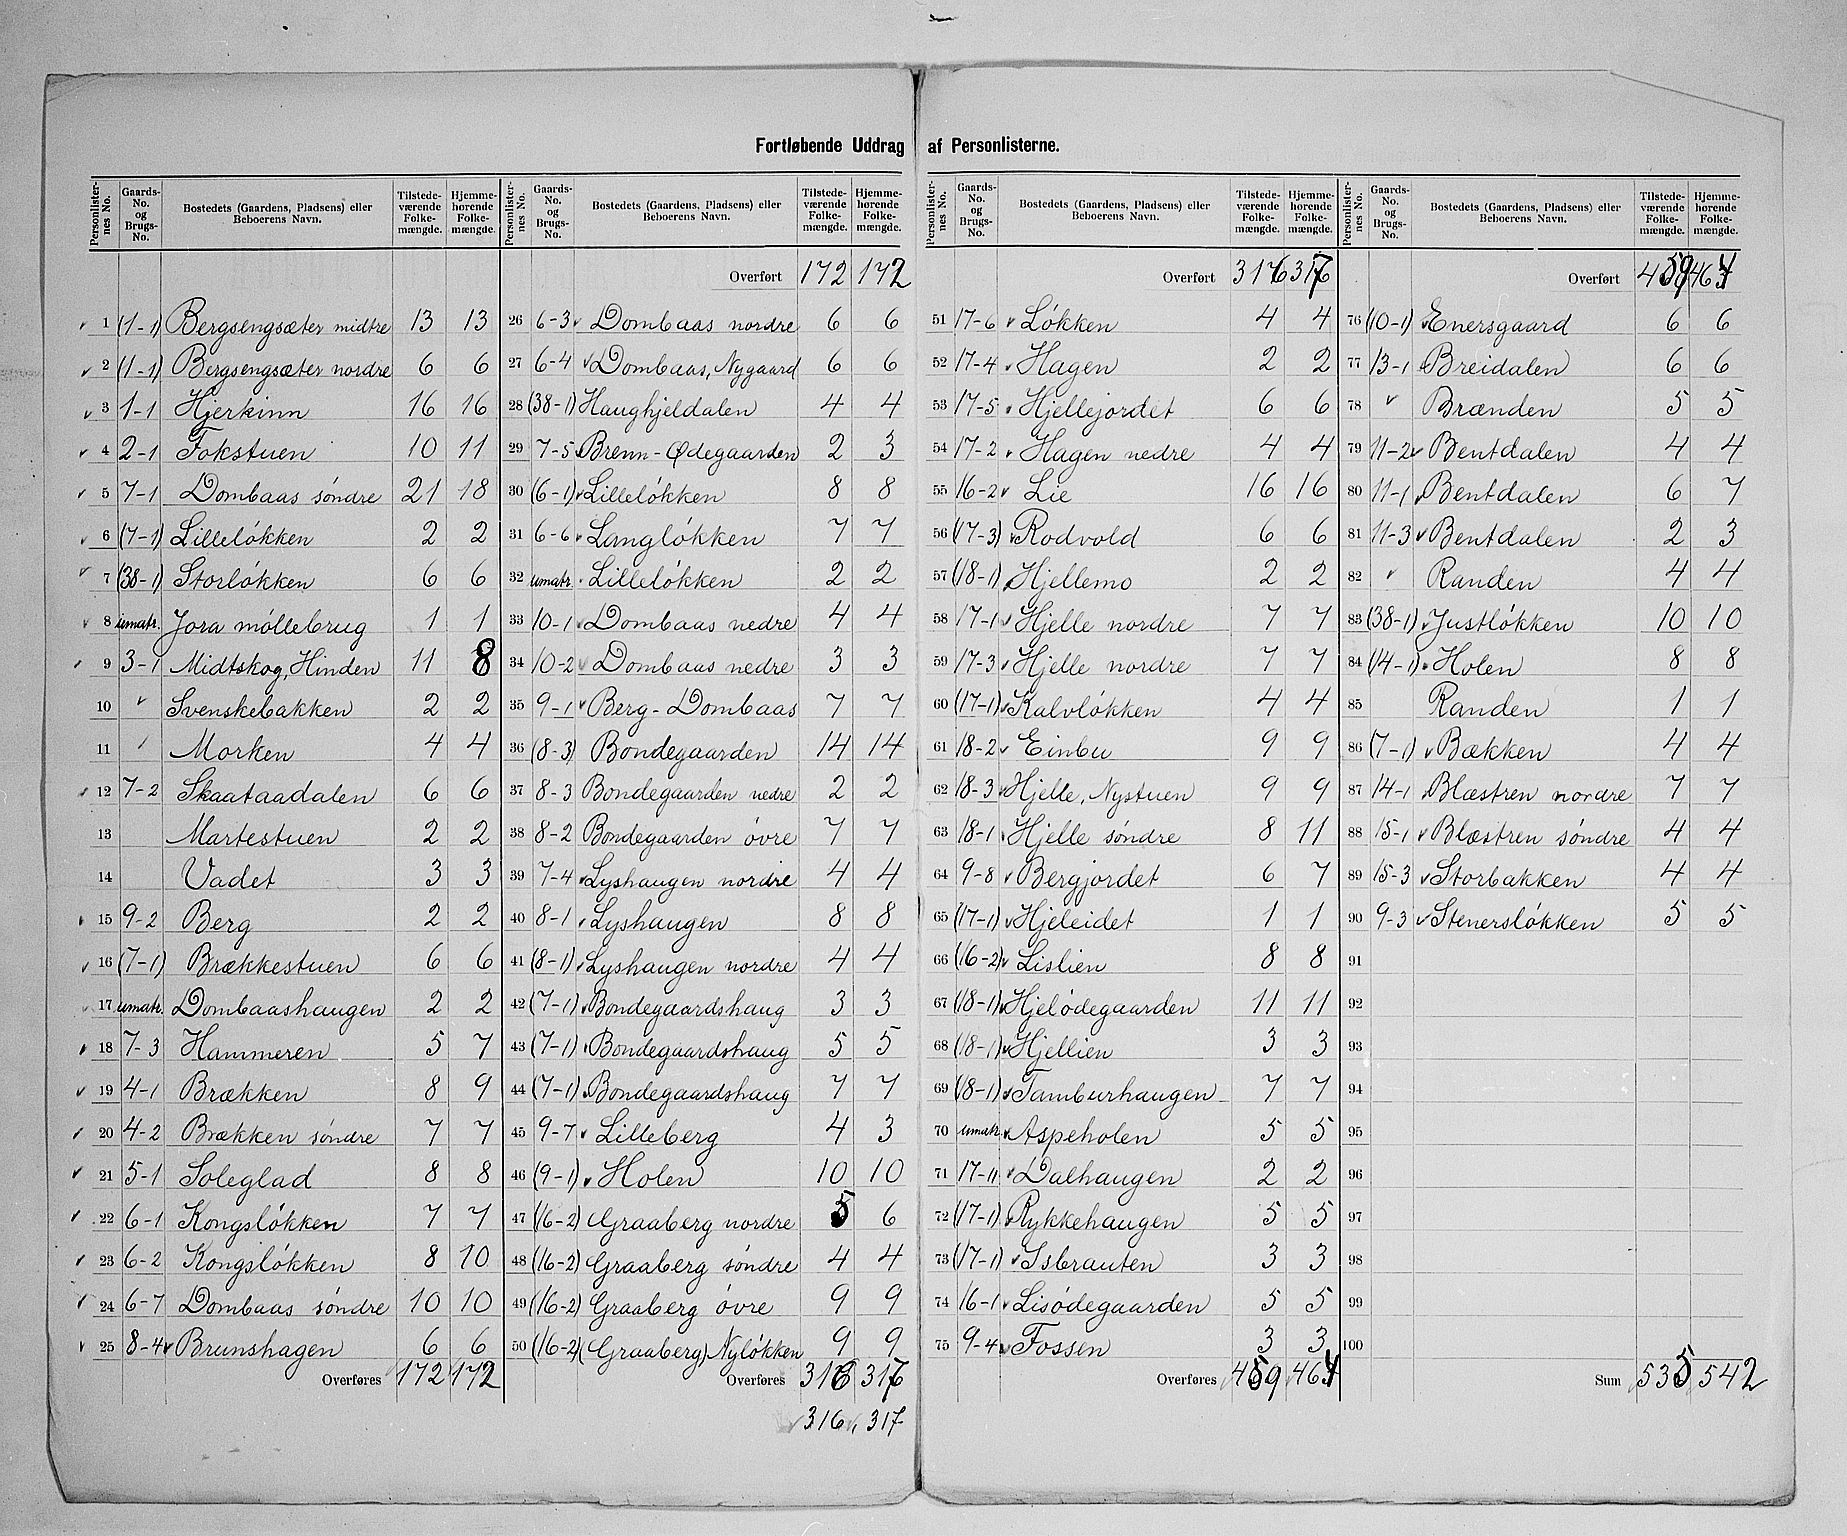 Fortløbende Uddrag af Personlisterne.
Personlisternes No. | Gaards-No. og Brugs-No. | Bostedets (Gaardens, Pladsens) eller Beboerens Navn. | Tilstedeværende Folkemængde. | Hjemmehørende Folkemængde.
1 (1-1) Bergsengsæter midtre 13 13
2 (1-1) Bergsengsæter nordre 6 6
3 1-1 Hjerkinn 16 16
4 2-1 Fokstuen 10 11
5 7-1 Dombaas söndre 21 18
6 (7-1) Lilleløkken 2 2
7 (38-1) Storløkken 6 6
8 umatr. Jora møllebrug 1 1
9 3-1 Midtskog, Hinden 11 8
10 " Svenskebakken 2 2
11 " Morken 4 4
12 7-2 Skaataadalen 6 6
13 Martestuen 2 2
14 Vadet 3 3
15 9-2 Berg 2 2
16 (7-1) Brækkestuen 6 6
17 umatr. Dombaashaugen 2 2
18 7-3 Hammeren 5 7
19 4-1 Brækken 8 9
20 4-2 Brækken söndre 7 7
21 5-1 Soleglad 8 8
22 6-1 Kongsløkken 7 7
23 6-2 Kongsløkken 8 10
24 6-7 Dombaas söndre 10 10
25 8-4 Brunshagen 6 6
Overføres 172 172
Personlisternes No. | Gaards-No. og Brugs-No. | Bostedets (Gaardens, Pladsens) eller Beboerens Navn. | Tilstedeværende Folkemængde. | Hjemmehørende Folkemængde.
Overført 172 172
26 6-3 Dombaas nordre 6 6
27 6-4 Dombaas, Nygaard 6 6
28 (38-1) Haughjeldalen 4 4
29 7-5 Brenn-Ødegaarden 2 3
30 (6-1) Lilleløkken 8 8
31 6-6 Langløkken 7 7
32 umatr. Lilleløkken 2 2
33 10-1 Dombaas nedre 4 4
34 10-2 Dombaas nedre 3 3
35 9-1 Berg-Dombaas 7 7
36 (8-3) Bondegaarden 14 14
37 8-3 Bondegaarden nedre 2 2
38 8-2 Bondegaarden øvre 7 7
39 7-4 Lyshaugen nordre 4 4
40 8-1 Lyshaugen 8 8
41 (8-1) Lyshaugen nordre 4 4
42 (7-1) Bondegaardshaug 3 3
43 (7-1) Bondegaardshaug 5 5
44 (7-1) Bondegaardshaug 7 7
45 9-7 Lilleberg 4 3
46 (9-1) Holen 10 10
47 (16-2) Graaberg nordre 5 6
48 (16-2) Graaberg söndre 4 4
49 (16-2) Graaberg øvre 9 9
50 (16-2) (Graaberg) Nyløkken 9 9
Overføres 316 317
316 317
Personlisternes No. | Gaards-No. og Brugs-No. | Bostedets (Gaardens, Pladsens) eller Beboerens Navn. | Tilstedeværende Folkemængde. | Hjemmehørende Folkemængde.
Overført 316 317
51 17-6 Løkken 4 4
52 17-4 Hagen 2 2
53 17-5 Hjellejordet 6 6
54 17-2 Hagen nedre 4 4
55 16-2 Lie 16 16
56 (17-3) Rodvold 6 6
57 (18-1) Hjellemo 2 2
58 17-1 Hjelle nordre 7 7
59 17-3 Hjelle nordre 7 7
60 (17-1) Kalvløkken 4 4
61 18-2 Einbu 9 9
62 18-3 Hjelle, Nystuen 9 9
63 18-1 Hjelle söndre 8 11
64 9-8 Bergjordet 6 7
65 (17-1) Hjeleidet 1 1
66 (16-2) Lislien 8 8
67 (18-1) Hjelödegaarden 11 11
68 (18-1) Hjellien 3 3
69 (18-1) Tamburhaugen 7 7
70 umatr. Aspeholen 5 5
71 17-11 Dalhaugen 2 2
72 (17-1) Rykkehaugen 5 5
73 (17-1) Isbrauten 3 3
74 16-1 Lisödegaarden 5 5
75 9-4 Fossen 3 3
Overføres 459 464
Personlisternes No. | Gaards-No. og Brugs-No. | Bostedets (Gaardens, Pladsens) eller Beboerens Navn. | Tilstedeværende Folkemængde. | Hjemmehørende Folkemængde.
Overført 459 464
76 (10-1) Enersgaard 6 6
77 13-1 Breidalen 6 6
78 " Brænden 5 5
79 11-2 Bentdalen 4 4
80 11-1 Bentdalen 6 7
81 11-3 Bentdalen 2 3
82 " Randen 4 4
83 (38-1) Justløkken 10 10
84 (14-1) Holen 8 8
85 Randen 1 1
86 (7-1) Bækken 4 4
87 14-1 Blæstren nordre 7 7
88 15-1 Blæstren söndre 4 4
89 15-3 Storbakken 4 4
90 9-3 Stenersløkken 5 5
91
92
93
94
95
96
97
98
99
100
Sum 535 542